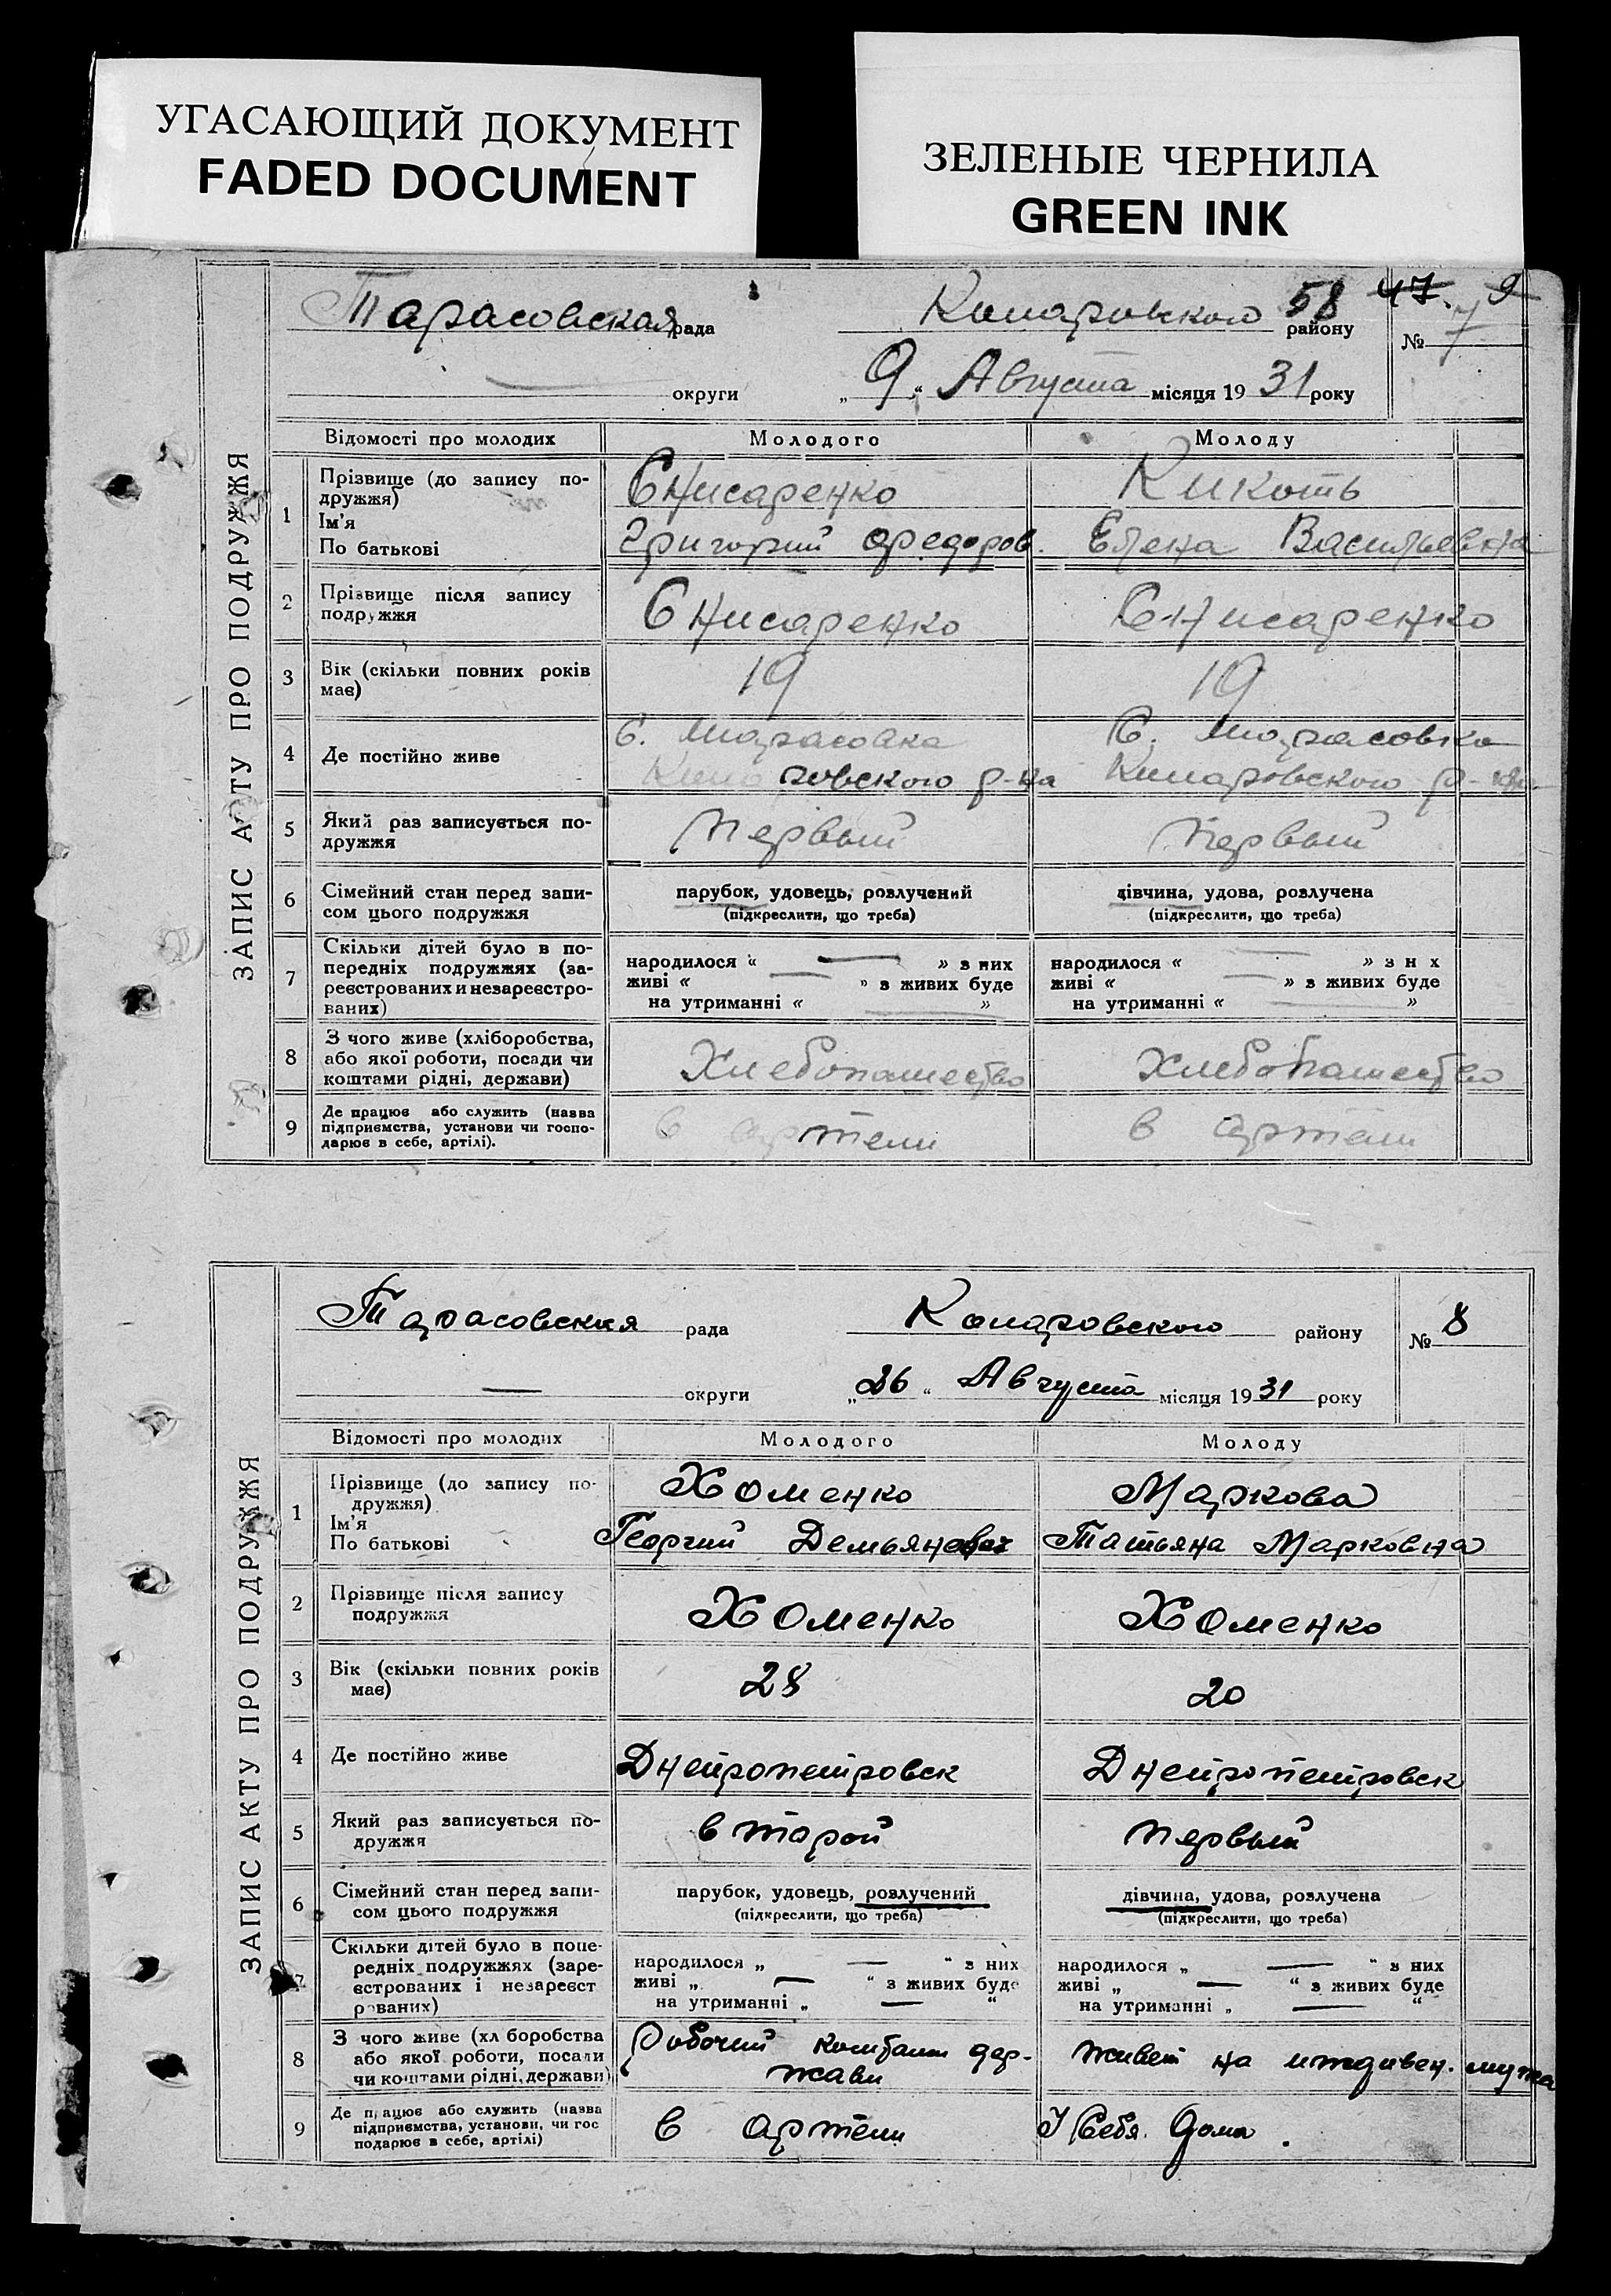 УГАСАЮЩИЙ ДОКУМЕНТ
FADED DOCUMENT
ЗЕЛЕНЫЕ ЧЕРНИЛА
GREEN INK
ЗАПИС АКТУ ПРО ПОДРУЖЖЯ
Тарасовская рада район у 58 47. 9
№ 7
округи „ 9 “ Августа місяця 19 31 року
Відомості про молодих Молодого Молоду
1 Прізвище (до запису по-
дружжя)
Ім'я
По батькові
Енисаренко Кикоть
Григорий Федоров. Елена Васильевна
2 Прізвище після запису
подружжя
Енисаренко Енисаренко
3 Вік (скільки повних років
має)
19 19
4 Де постійно живе
С. Тарасовка С. Тарасовка
ровского р-на р-на
5 Який раз записується по-
дружжя
Первый Первый
6 Сімейний стан перед запи-
сом цього подружжя
парубок, удовець, розлучений дівчина, удова, розлучена
(підкреслити, що треба) (підкреслити, що треба)
7 Скільки дітей було в по-
передніх подружжях (за-
реєстрованих и незареєстро-
ваних)
народилося « — » з них народилося « — » з н х
живі « — » з живих буде живі « — » з живих буде
на утриманні « — » на утриманні « — »
8 З чого живе (хліборобства,
або якої роботи, посади чи
коштами рідні, держави)
Хлебопашество Хлебопашество
9 Де працює або служить (назва
підприємства, установи чи госпо-
дарює в себе, артілі).
в артели в артели
ЗАПИС АКТУ ПРО ПОДРУЖЖЯ
Тарасовская рада району № 8
— округи „ 26 “ Августа місяця 19 31 року
Відомості про молодих Молодого Молоду
1 Прізвище (до запису по-
дружжя)
Ім'я
По батькові
Хоменко Маркова
Георгий Демьянович Татьяна Марковна
2 Прізвище після запису
подружжя
Хоменко Хоменко
3 Вік (скільки повних років
має)
28 20
4 Де постійно живе
Днепропетровск Днепропетровск
5 Який раз записується по-
дружжя
второй первый
6 Сімейний стан перед запи-
сом цього подружжя
парубок, удовець, розлучений дівчина, удова, розлучена
(підкреслити, що треба) (підкреслити, що треба)
7 Скільки дітей було в попе-
редніх подружжях (заре-
єстрованих і незареєст
рованих)
народилося „ — “ з них народилося „ — “ з них
живі „ — “ з живих буде живі „ — “ з живих буде
на утриманні „ — “ на утриманні „ — “
8 З чого живе (хл боробства
або якої роботи, посади
чи коштами рідні, держави)
Рабочий дер- живет на иждивен. мужа
жави
9 Де працює або служить (назва
підприємства, установи, чи гос
подарює в себе, артілі)
в артели У себя дома.